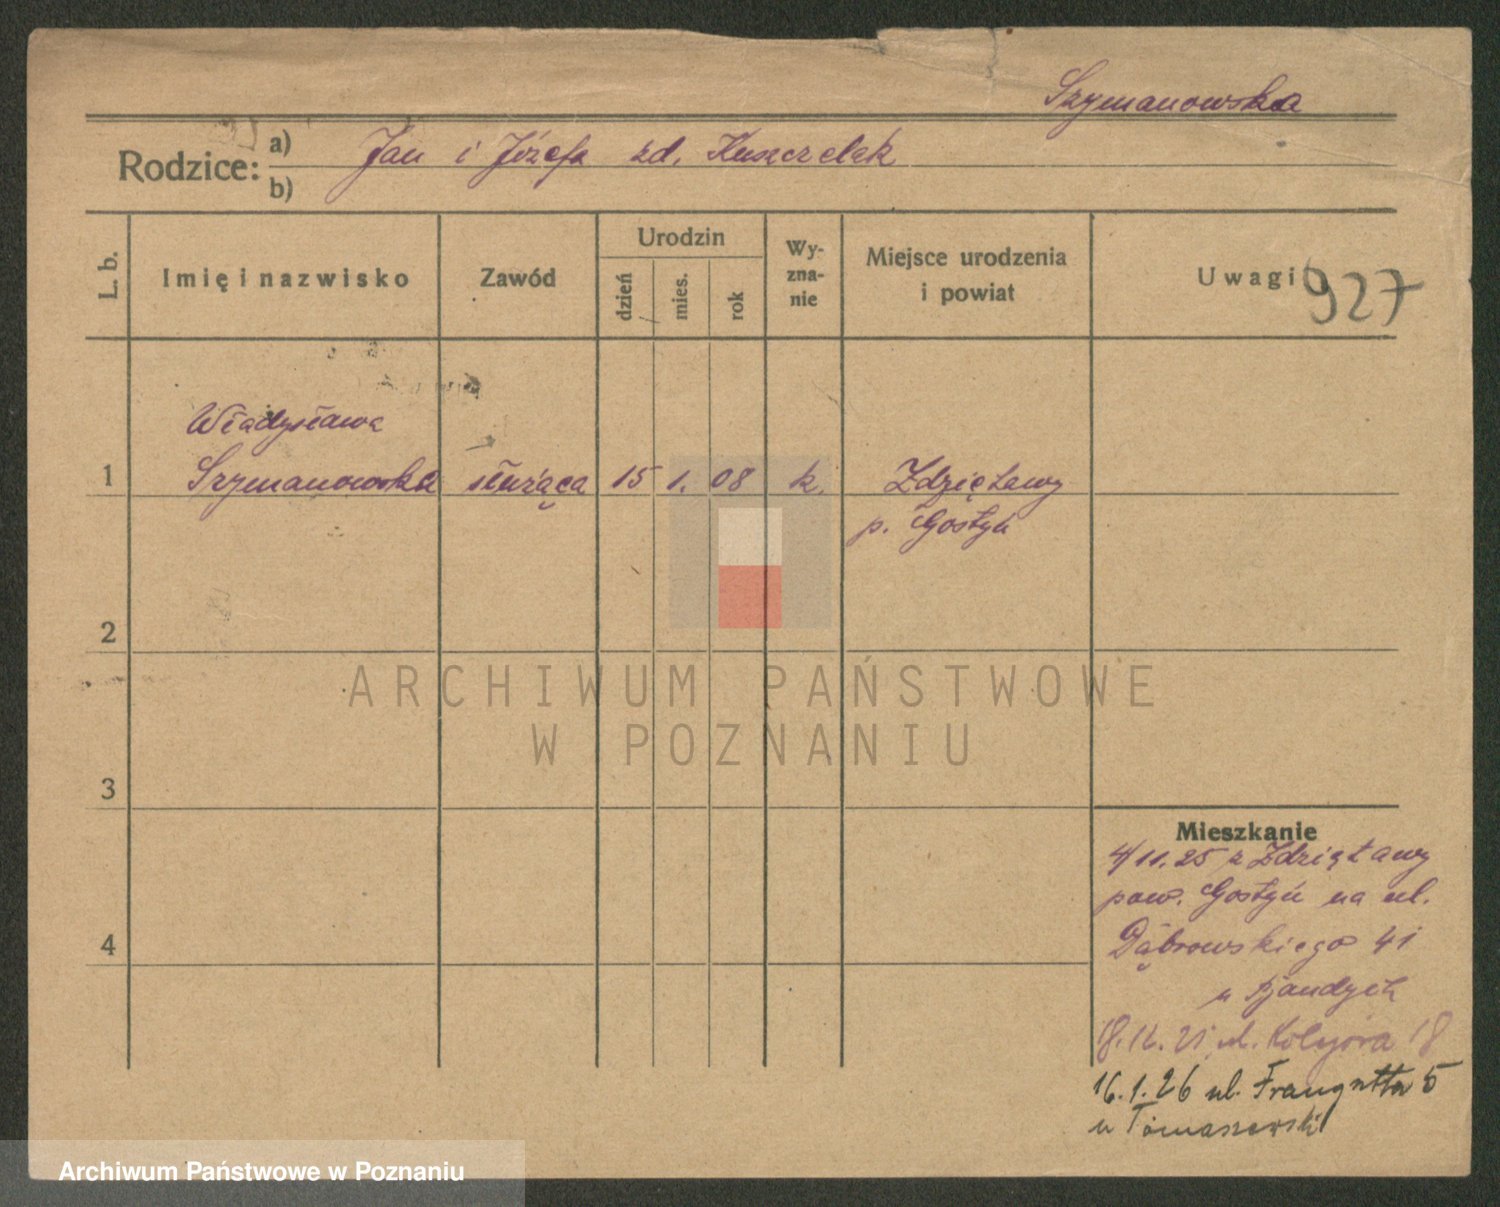 Szymanowska
Rodzice: a) Jan i Józefa zd. Kuszczelak
b)
L. b.
Imię i nazwisko
Zawód
Urodzin
dzień
mies.
rok
Wy-
zna-
nie
Miejsce urodzenia
i powiat
Uwagi
927
Władysława
1 Szymanowska służąca 15 1. 08 k. Zdziętawy
p. Gostyń
2
3
4
Mieszkanie
4/11.25 z Zdziętawy
pow. Gostyń na ul.
Dąbrowskiego 41
u
18.12. ul. 18
16.1.26 ul. 5
u Tomaszewski
ARCHIWUM PAŃSTWOWE
W POZNANIU
Archiwum Państwowe w Poznaniu